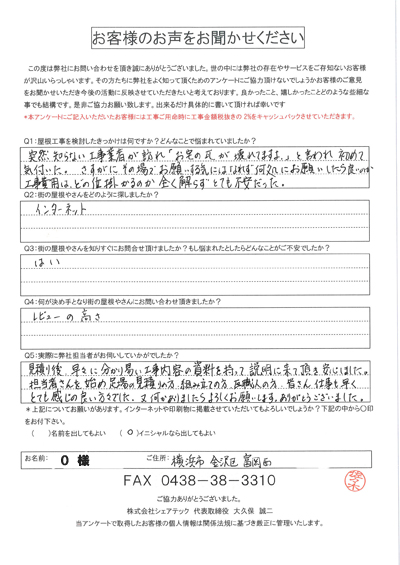 お客様のお声をお聞かせください
この度は弊社にお問い合わせを頂き誠にありがとうございました。世の中には弊社の存在やサービスをご存知ないお客様
が沢山いらっしゃいます。その方たちに弊社をよく知って頂くためのアンケートにご協力頂けないでしょうかお客様のご意見
をお聞かせいただき今後の活動に反映させていただきたいと考えております。良かったこと、嬉しかったことどのような些細な
事でも結構です。是非ご協力お願い致します。出来るだけ具体的に書いて頂ければ幸いです
*本アンケートにご記入いただいたお客様には工事ご用命時に工事金額税抜きの2%をキャッシュバックさせていただきます。
Q1:屋根工事を検討したきっかけは何ですか?どんなことで悩まれていましたか?
突然、知らない工事業者が訪れ「お宅の瓦が壊れてますよ。」と言われ初めて
気付いた。さすがにその場でお願いする気にはなれず何処にお願いしたら良いのか
工事費用は、どの位掛かるのか全く解らずとても不安だった。
Q2:街の屋根やさんをどのように探しましたか?
インターネット
Q3:街の屋根やさんを知りすぐにお問合せ頂けましたか?もし悩まれたとしたらどんなことがご不安でしたか?
はい
Q4:何が決め手となり街の屋根やさんにお問い合わせ頂きましたか?
レビューの高さ
Q5:実際に弊社担当者がお伺いしていかがでしたか?
見積り後、早々に分かり易い工事内容の資料を持って説明に来て頂き安心しました。
担当者さんを始め足場の見積りの方、組み立ての方、瓦職人の方、皆さん仕事も早く
とても感じの良い方々でした。又何かありましたらよろしくお願いします。ありがとうございました。
*上記についてお願いがあります。インターネットや印刷物に掲載させていただいてもよろしいでしょうか?下記の中から〇印
をお付下さい。
( )名前を出してもよい (〇)イニシャルなら出してもよい
お名前: O 様 ご住所: 横浜市 金沢区 富岡西
FAX 0438-38-3310
ご協力ありがとうございました。
株式会社シェアテック 代表取締役 大久保 誠二
当アンケートで取得したお客様の個人情報は関係法規に基づき厳正に管理いたします。